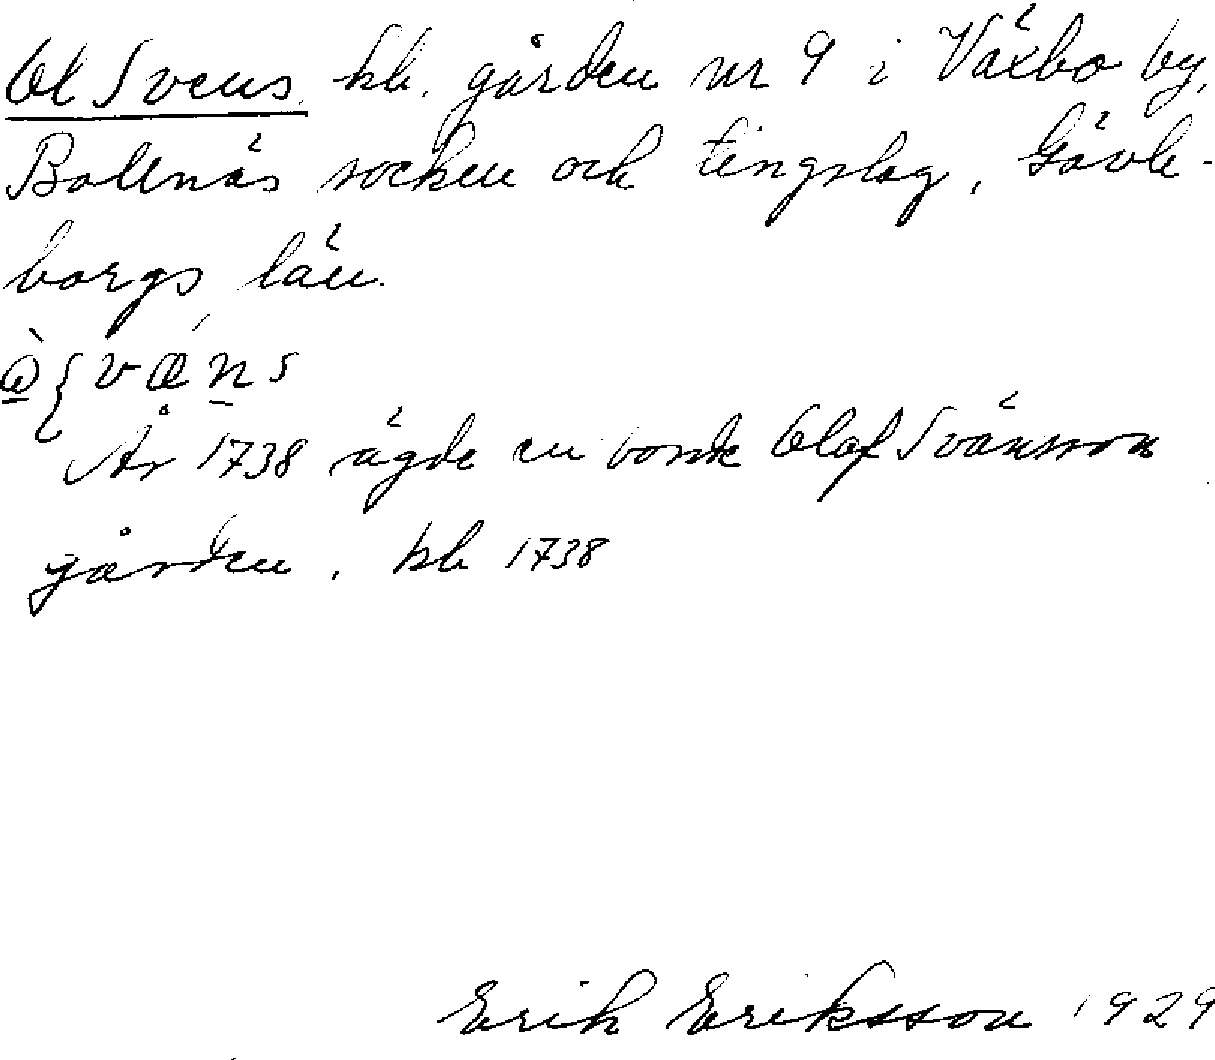 Ol Svens. kb. gården nr 9 i Växbo by,
Bollnäs socken och tingslag, Gävle-
borgs län.
År 1738 ägde en bonde Olof Svänsson
gården. kb 1738
Erik Eriksson 1929